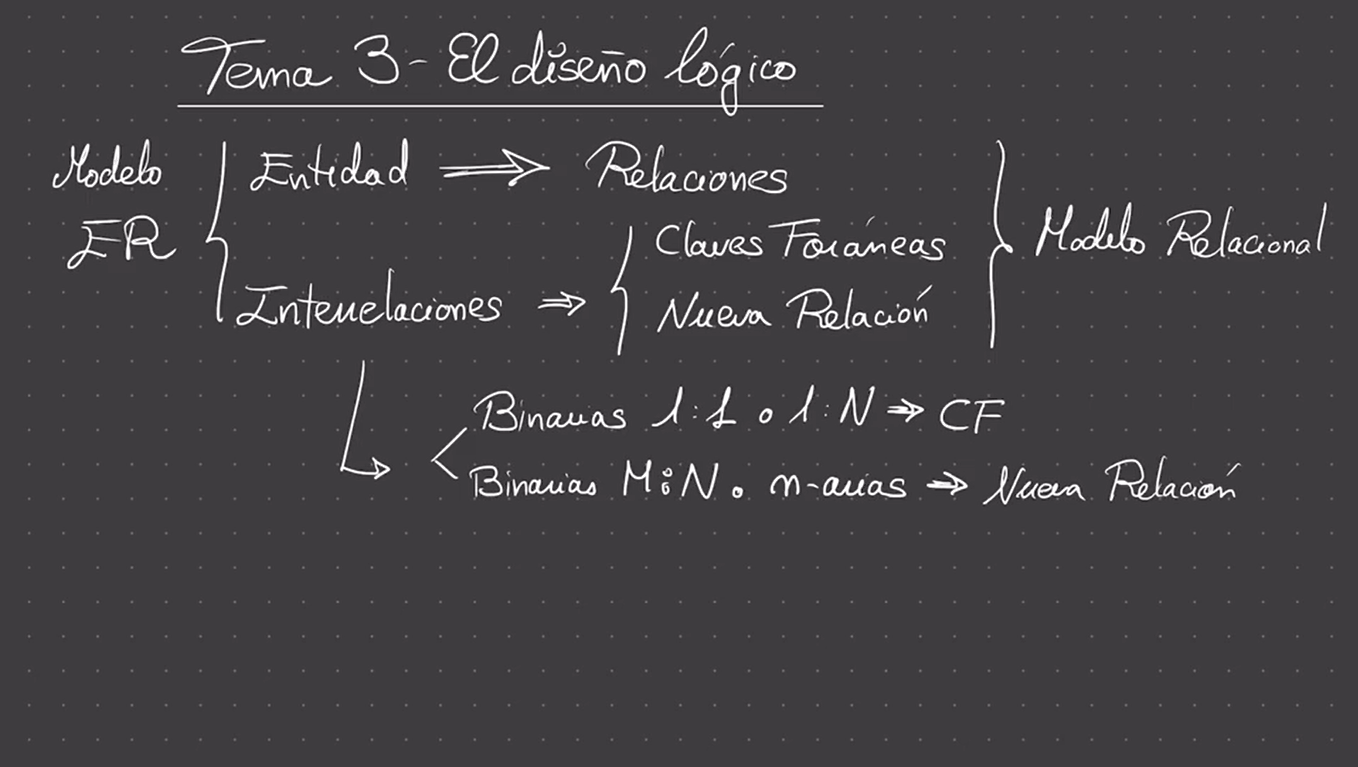 Tema 3 - El diseño lógico
Modelo ER
Entidad ⇒ Relaciones
Interrelaciones ⇒ Claves Foráneas
Nueva Relación
Modelo Relacional
Binarias 1:1 o 1:N ⇒ CF
Binarias M:N o n-arias ⇒ Nueva Relación